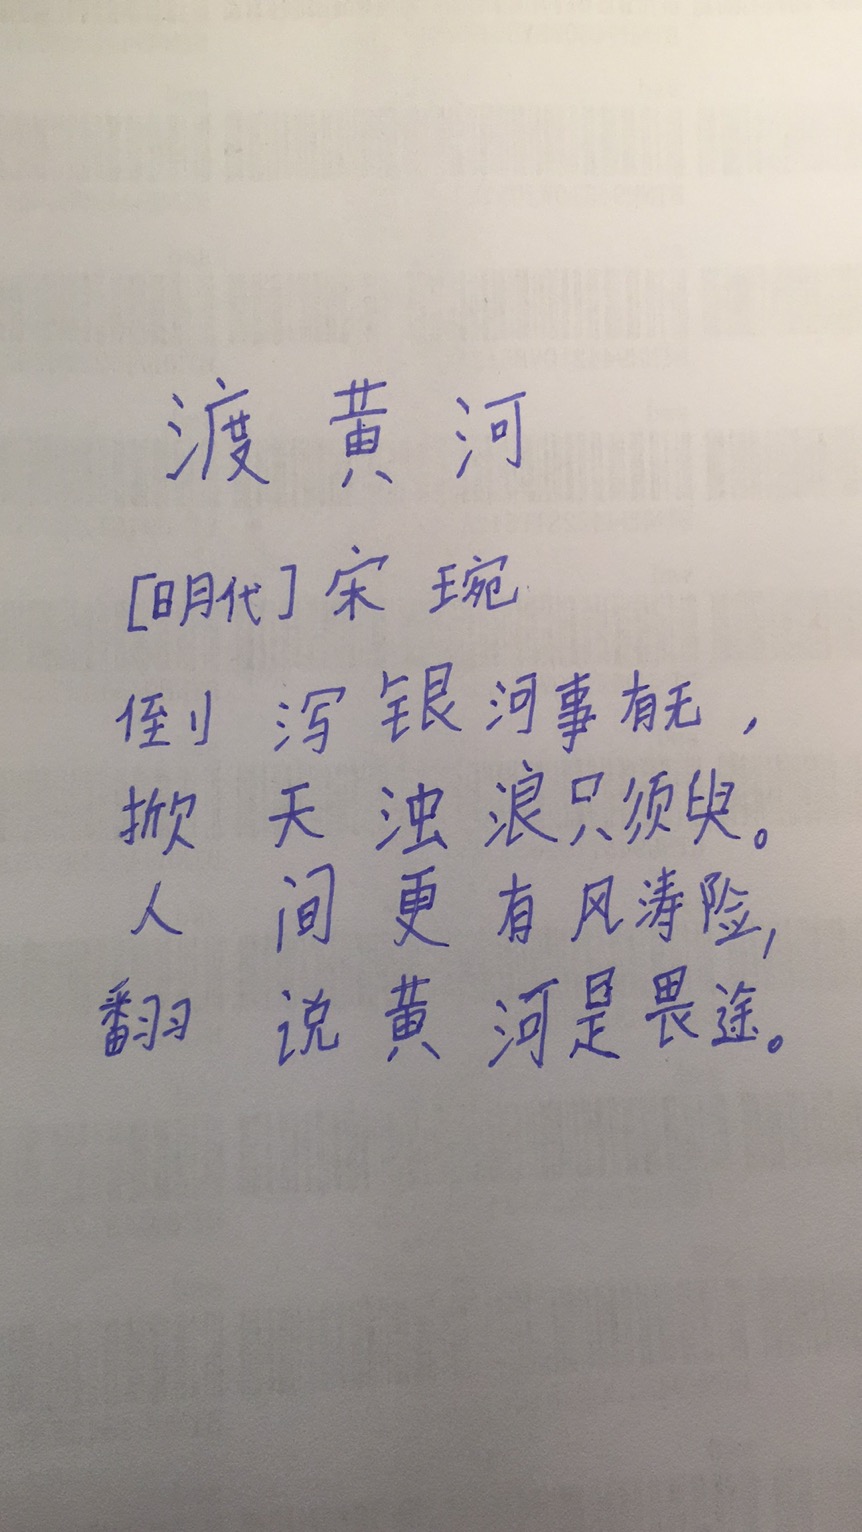 渡黄河
[明代]宋琬
倒泻银河事有无，
掀天浊浪只须臾。
人间更有风涛险，
翻说黄河是畏途。